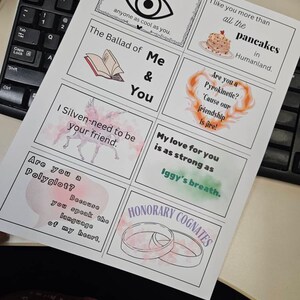 anyone as cool as you.
I like you more than
all the
pancakes
in Humanland.
The Ballad of
Me
&
You
Are you a
Pyrokinetic?
'Cause our
friendship
is fire!
I Silven-need to be
your friend.
My love for you
is as strong as
Iggy's breath.
Are you a
Polyglot?
Because
you speak the
language
of my heart.
HONORARY COGNATES